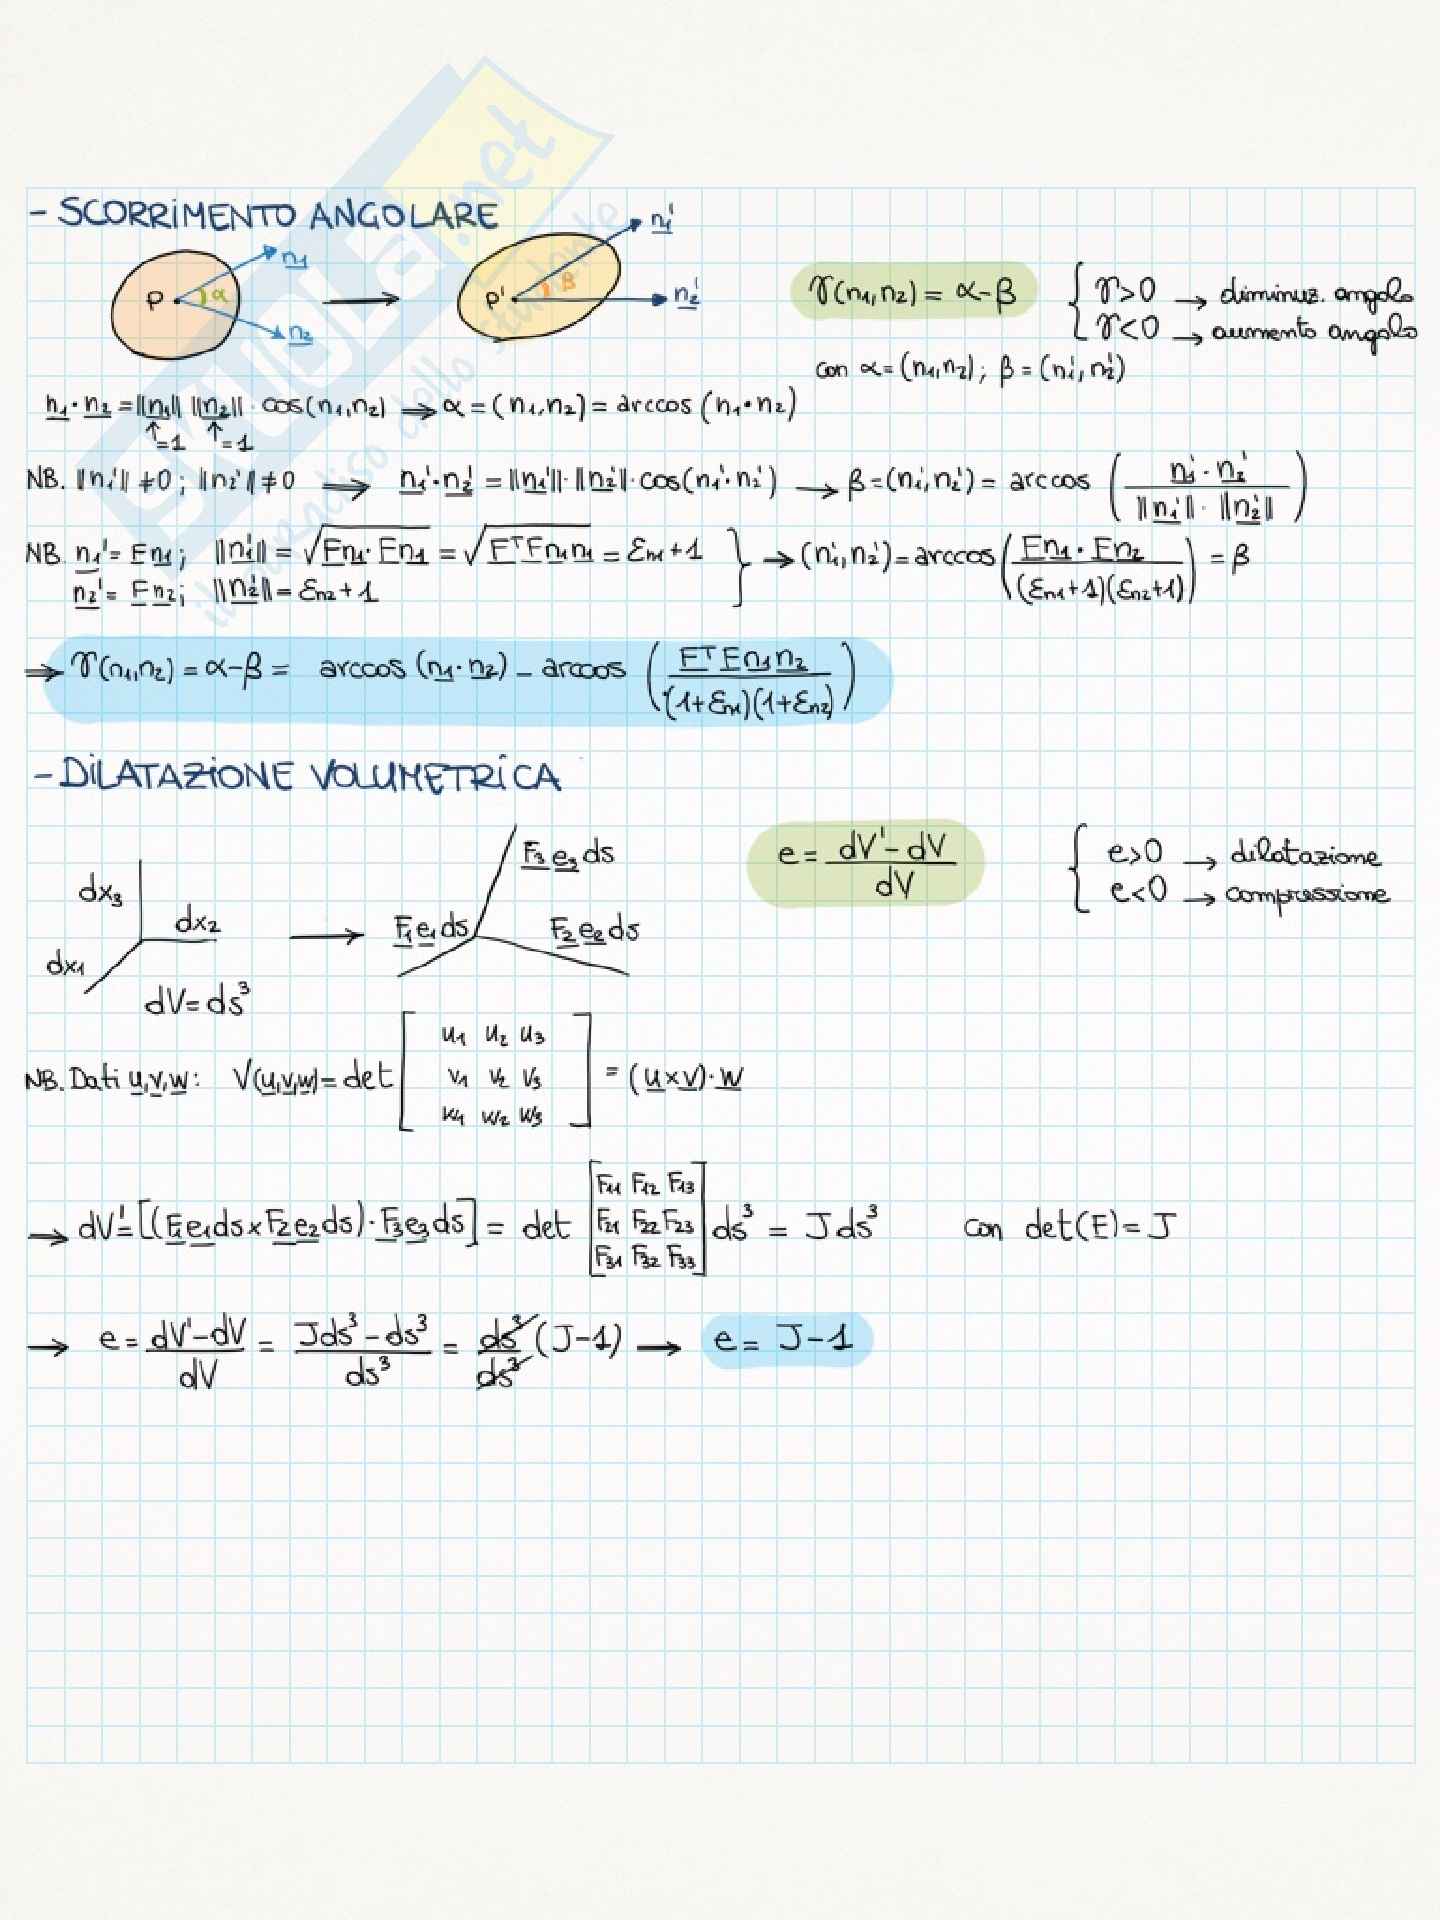 - SCORRIMENTO ANGOLARE
P α n1 n2 → P' β n1' n2'
γ(n1,n2) = α-β { γ>0 → diminuz. angolo
γ<0 → aumento angolo
con α=(n1,n2); β=(n1',n2')
n1·n2 = ||n1|| ||n2||·cos(n1,n2) → α=(n1,n2)= arccos (n1·n2)
↑=1 ↑=1
NB. ||n1'|| ≠0; ||n2'|| ≠0 → n1'·n2' = ||n1'||·||n2'||·cos(n1'·n2') → β=(n1',n2') = arccos (n1'·n2' / ||n1'||·||n2'||)
NB. n1'= Fn1; ||n1'|| = √Fn1·Fn1 = √FᵀFn1n1 = εn1+1 } → (n1',n2')=arccos(Fn1·Fn2 / (εn1+1)(εn2+1)) = β
n2'= Fn2; ||n2'|| = εn2+1
⇒ γ(n1,n2) = α-β = arccos (n1·n2) - arccos (FᵀFn1n2 / (1+εn1)(1+εn2))
- DILATAZIONE VOLUMETRICA
dx3 dx2 dx1 → F3e3ds F1e1ds F2e2ds
dV=ds³
e = dV'-dV / dV { e>0 → dilatazione
e<0 → compressione
NB. Dati u,v,w: V(u,v,w)= det [ u1 u2 u3
v1 v2 v3
w1 w2 w3 ] = (u×v)·w
→ dV'=[(F1e1ds×F2e2ds)·F3e3ds] = det [F11 F12 F13
F21 F22 F23
F31 F32 F33] ds³ = Jds³ con det(F)=J
→ e= dV'-dV / dV = Jds³-ds³ / ds³ = ds³ / ds³ (J-1) → e= J-1
SKUOLA.net
il paradiso dello studente